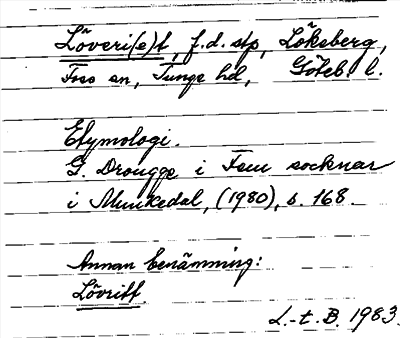 Löveri(e)t, f.d. stp, Löksberg,
Foss sn, Tunge hd, Göteb. l.
Etymologi.
G. Drougge i Fem socknar
i Munkedal, (1980), s. 168.
Annan benämning:
Lövritt.
L.-t. B. 1983.